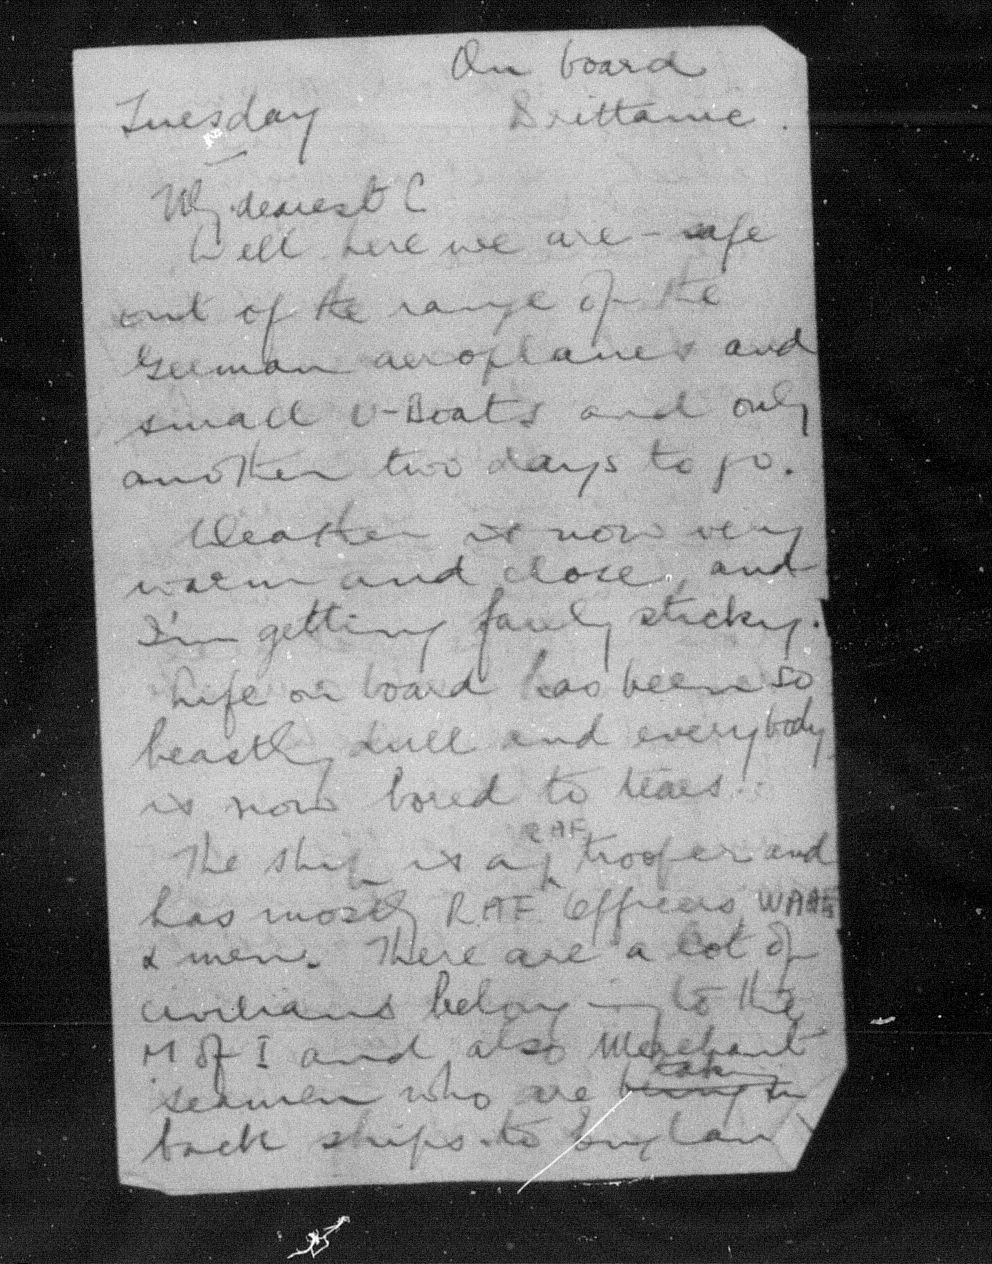 On board
Tuesday Brittanic.
My dearest C
Well here we are - safe
out of the range of the
German aeroplanes and
small U-Boats and only
another two days to go.
Weather is now very
warm and close, and
I'm getting fairly sticky.
Life on board has been so
beastly dull and everybody
is now bored to tears.
RAF
The ship is a trooper and
has mostly RAF Officers, WAAFs
& men. There are a lot of
civilians belonging to the
M of I and also Merchant
taking
seamen who are being
back ships to England